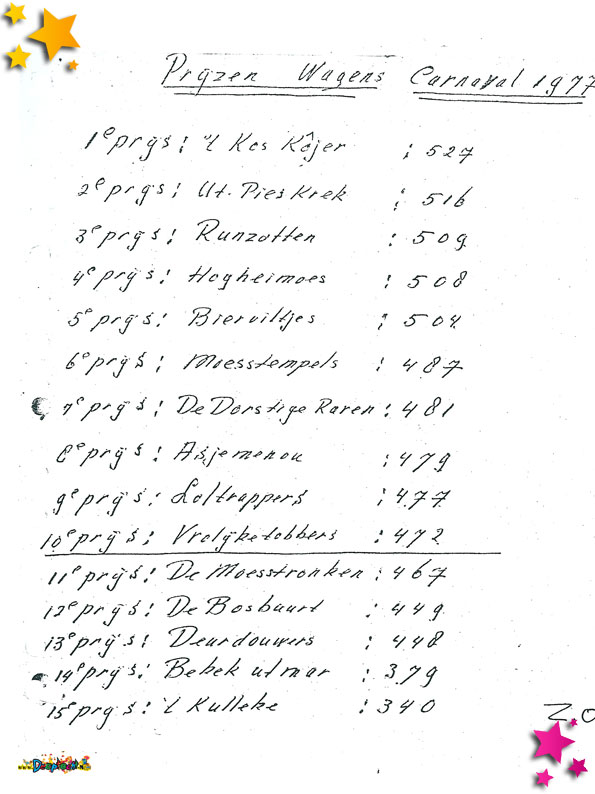 Prijzen Wagens Carnaval 1977
1e prijs: 't Kos Kôjer : 527
2e prijs: Ut. Pies Krek : 516
3e prijs: Runzotten : 509
4e prijs: Hogheimoes : 508
5e prijs: Bierviltjes : 504
6e prijs: Moesstempels : 487
7e prijs: De Dorstige Raven : 481
8e prijs: Asjemenou : 479
9e prijs: Loltrappers : 477
10e prijs: Vrolijke tobbers : 472
11e prijs: De Moesstronken : 467
12e prijs: De Bosbuurt : 449
13e prijs: Deurdouwers : 448
14e prijs: Bekek ut mar : 379
15e prijs: 't Kulleke : 340
Z.O